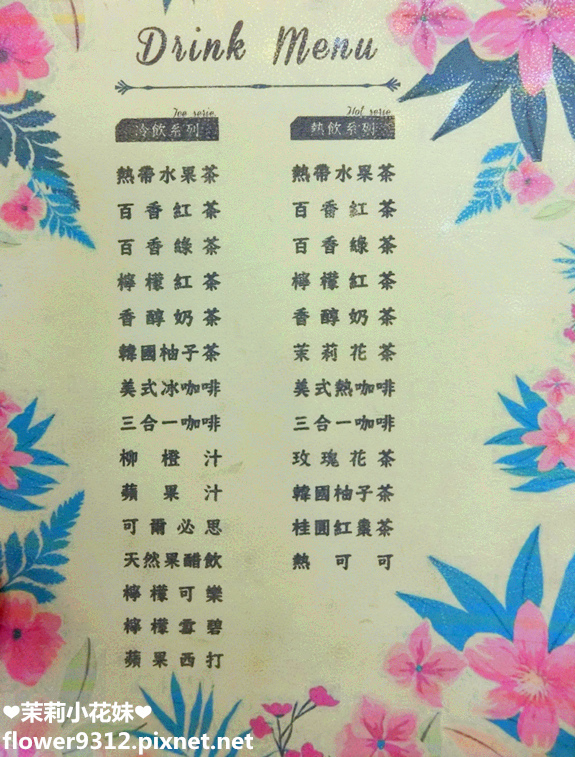 Drink Menu
Ice serie.
冷飲系列
熱帶水果茶
百香紅茶
百香綠茶
檸檬紅茶
香醇奶茶
韓國柚子茶
美式冰咖啡
三合一咖啡
柳橙汁
蘋果汁
可爾必思
天然果醋飲
檸檬可樂
檸檬雪碧
蘋果西打
Hot serie.
熱飲系列
熱帶水果茶
百香紅茶
百香綠茶
檸檬紅茶
香醇奶茶
茉莉花茶
美式熱咖啡
三合一咖啡
玫瑰花茶
韓國柚子茶
桂圓紅棗茶
熱可可
❤茉莉小花妹❤
flower9312.pixnet.net